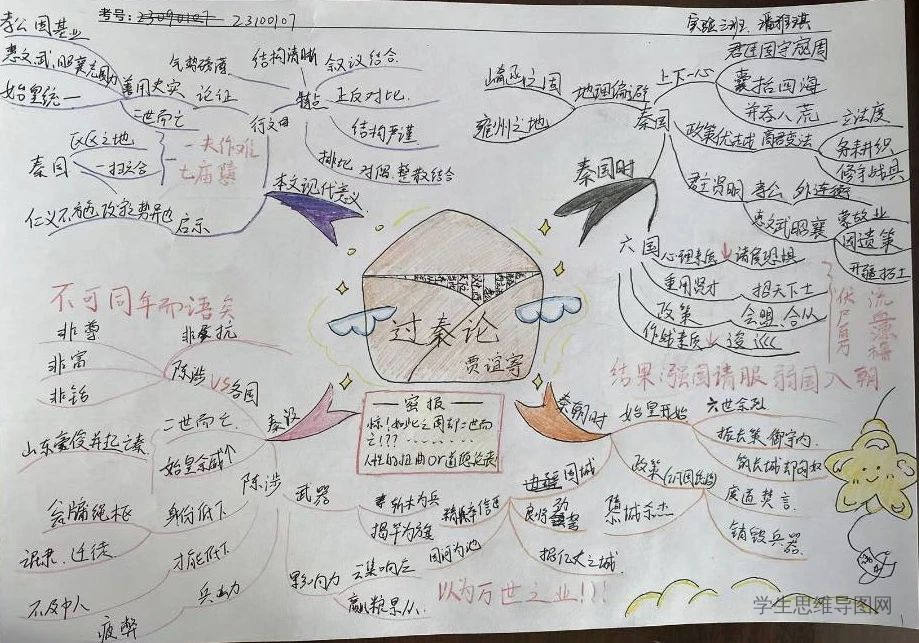 考号：23090107 23100107
实验三班
孝公固基业
惠文、武、昭襄
始皇统一
善用史实
二世而亡
气势磅礴
论证
结构清晰
叙议结合
正反对比
特点
行文
结构严谨
排比 对偶 整散结合
区区之地
秦国
一扫六合
一夫作难
七庙隳
仁义不施
启示
本文现代意义
崤函之固
雍州之地
地理偏僻
上下一心
君臣固守窥周
囊括四海
并吞八荒
秦国
政策优越 商君变法
立法度
务耕织
修守战具
君主贤明
孝公 外连衡
惠文武昭襄
蒙故业
因遗策
秦国时
六国
诸侯恐惧
重用贤才
招天下士
政策
会盟、合从
伏尸百万
流血漂橹
结果：强国请服 弱国入朝
过秦论
贾谊写
密报
惊！如此之固却二世而亡！？？
人性的扭曲or道德沦丧
不可同年而语矣
非尊
非富
陈涉VS各国
二世而亡
山东豪俊并起亡秦
陈涉
瓮牖绳枢
身份低下
氓隶、迁徒
才能低下
不及中人
疲弊
武器
斩木为兵
揭竿为旗
影响力
云集响应
赢粮景从
秦朝时
始皇开始
六世余烈
振长策、御宇内
筑长城却匈奴
政策
废道焚言
隳城杀杰
销毁兵器
因河为池
据亿丈之城
以为万世之业！！！
学生思维导图网